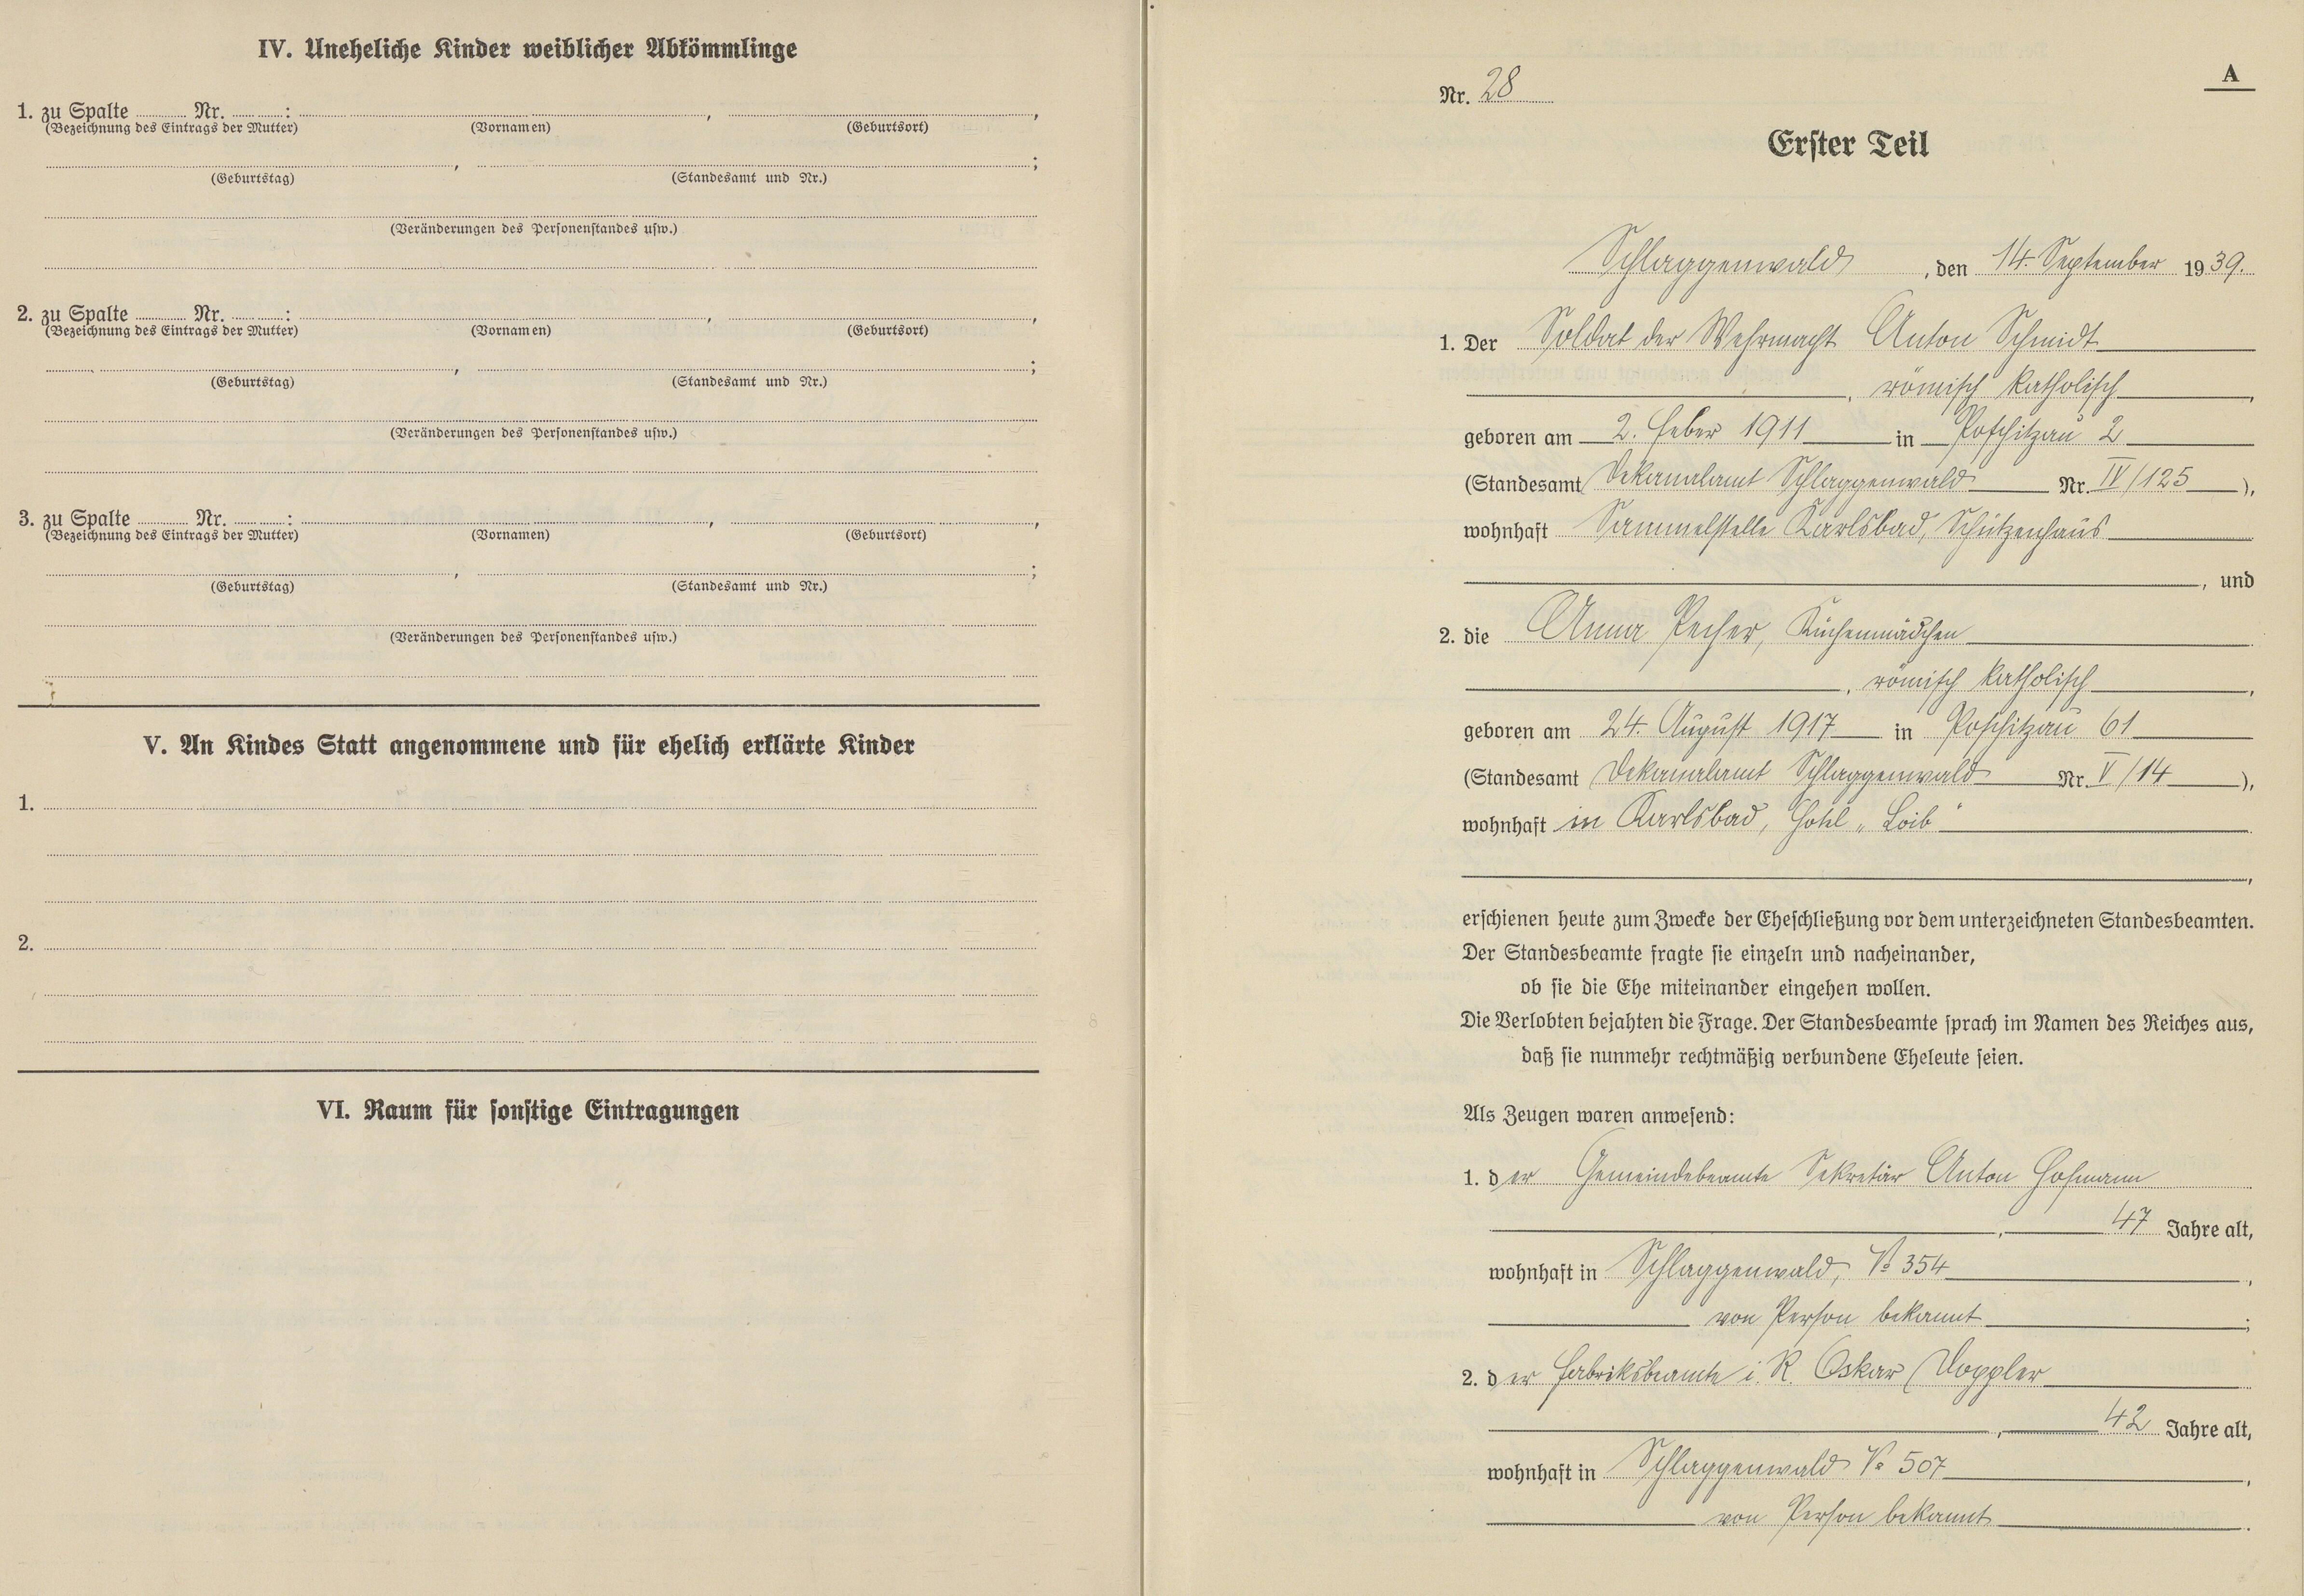 IV. Uneheliche Kinder weiblicher Abkömmlinge
1. zu Spalte ........ Nr. ........:
(Bezeichnung des Eintrags der Mutter) (Vornamen) (Geburtsort)
(Geburtstag) (Standesamt und Nr.)
(Veränderungen des Personenstandes usw.)
2. zu Spalte ........ Nr. ........:
(Bezeichnung des Eintrags der Mutter) (Vornamen) (Geburtsort)
(Geburtstag) (Standesamt und Nr.)
(Veränderungen des Personenstandes usw.)
3. zu Spalte ........ Nr. ........:
(Bezeichnung des Eintrags der Mutter) (Vornamen) (Geburtsort)
(Geburtstag) (Standesamt und Nr.)
(Veränderungen des Personenstandes usw.)
V. An Kindes Statt angenommene und für ehelich erklärte Kinder
1.
2.
VI. Raum für sonstige Eintragungen
A
Nr. 28
Erster Teil
Schlaggenwald, den 14. September 1939.
1. Der Soldat der Wehrmacht Anton Schmidt
, römisch katholisch,
geboren am 2. Feber 1911 in Poschitzau 2
(Standesamt Dekanalamt Schlaggenwald Nr. IV/125),
wohnhaft Sammelstelle Karlsbad, Schützenhaus
, und
2. die Anna Pecher, Küchenmädchen
, römisch katholisch,
geboren am 24. August 1917 in Poschitzau 61
(Standesamt Dekanalamt Schlaggenwald Nr. V/14),
wohnhaft in Karlsbad, Hotel „Loib"
,
erschienen heute zum Zwecke der Eheschließung vor dem unterzeichneten Standesbeamten.
Der Standesbeamte fragte sie einzeln und nacheinander,
ob sie die Ehe miteinander eingehen wollen.
Die Verlobten bejahten die Frage. Der Standesbeamte sprach im Namen des Reiches aus,
daß sie nunmehr rechtmäßig verbundene Eheleute seien.
Als Zeugen waren anwesend:
1. der Gemeindebeamte Sekretär Anton Hofmann
, 47 Jahre alt,
wohnhaft in Schlaggenwald, № 354,
von Person bekannt;
2. der Fabriksbeamte i. R. Oskar Doppler
, 42 Jahre alt,
wohnhaft in Schlaggenwald № 507,
von Person bekannt.